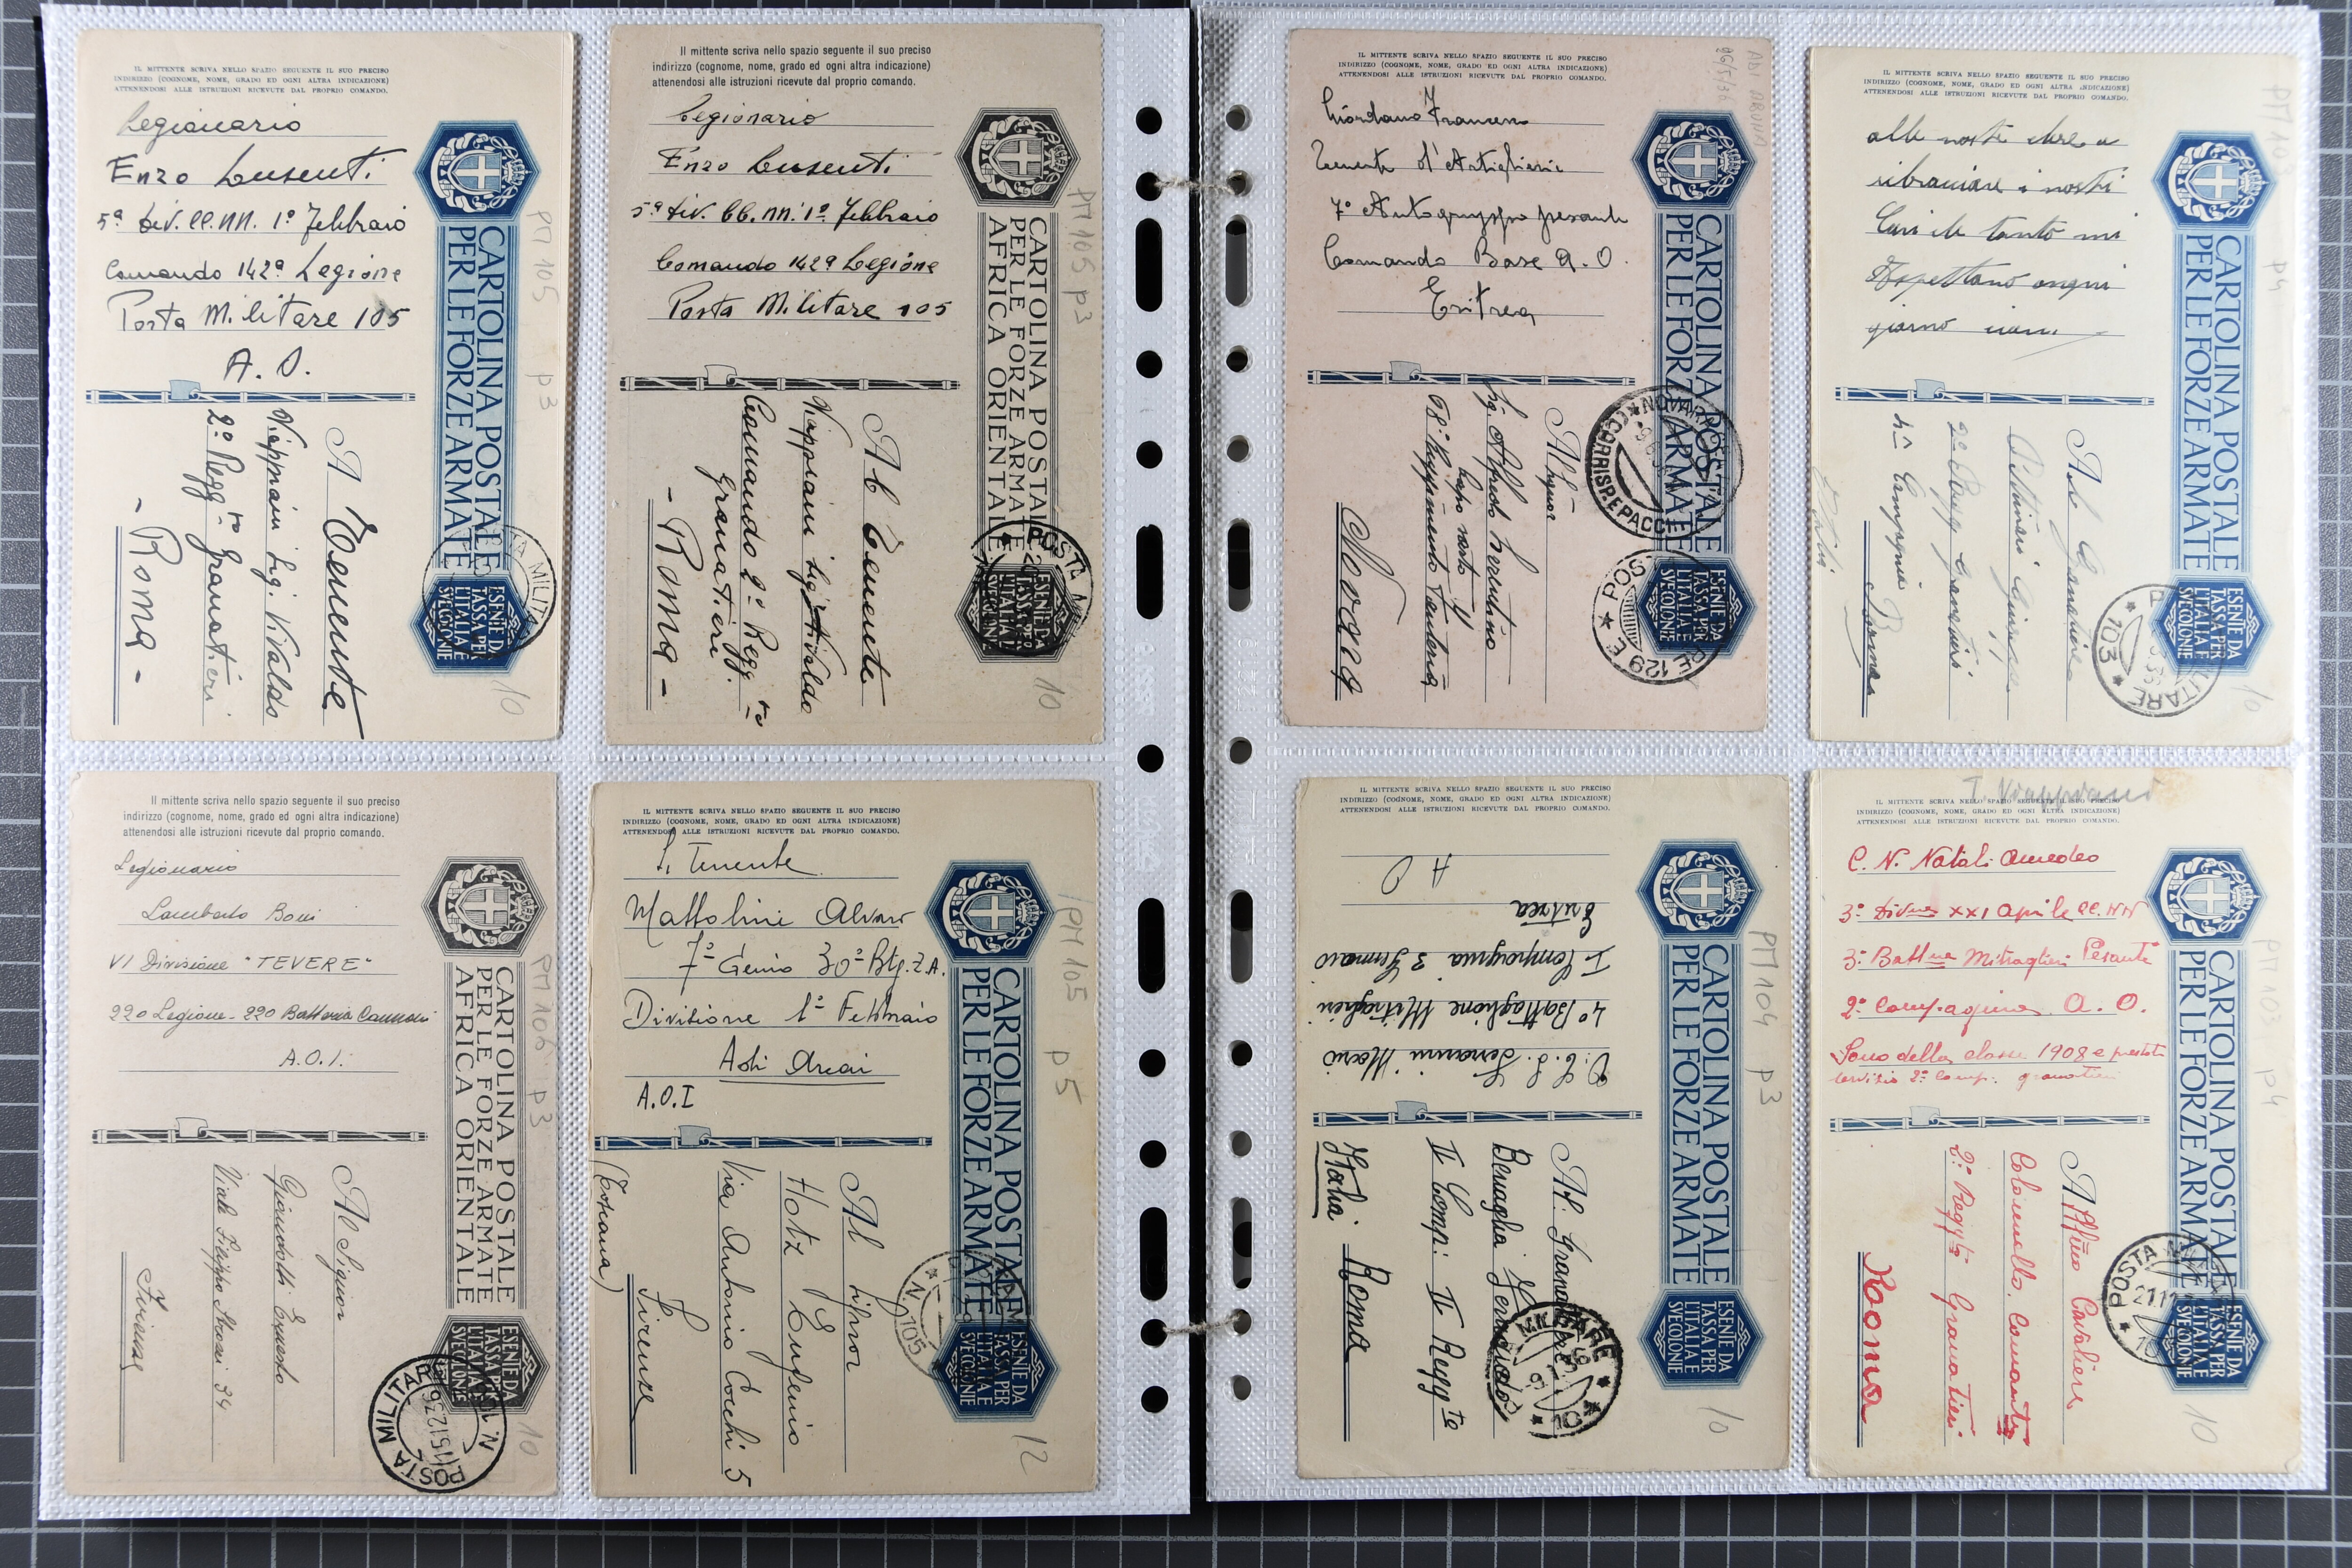 IL MITTENTE SCRIVA NELLO SPAZIO SEGUENTE IL SUO PRECISO
INDIRIZZO (COGNOME, NOME, GRADO ED OGNI ALTRA INDICAZIONE)
ATTENENDOSI ALLE ISTRUZIONI RICEVUTE DAL PROPRIO COMANDO.
Legionario
Enzo Lusenti
5ª Div. CC.NN. 1º Febbraio
Comando 142ª Legione
Posta Militare 105
A. O.
CARTOLINA POSTALE
PER LE FORZE ARMATE
ESENTE DA
TASSA PER
L'ITALIA E
SVE COLONIE
A Tenente
Viappiani Sig. Vivaldo
2º Regg.to Granatieri
- Roma -
PM 105 p3
10
Il mittente scriva nello spazio seguente il suo preciso
indirizzo (cognome, nome, grado ed ogni altra indicazione)
attenendosi alle istruzioni ricevute dal proprio comando.
Legionario
Enzo Lusenti
5ª Div. CC.NN. 1º Febbraio
Comando 142ª Legione
Posta Militare 105
CARTOLINA POSTALE
PER LE FORZE ARMATE
AFRICA ORIENTALE
ESENIE DA
TASSA PER
L'ITALIA E
SVE COLONIE
Al Tenente
Viappiani Sig. Vivaldo
Comando 2º Regg.to
Granatieri
- Roma -
PM 105 p3
10
IL MITTENTE SCRIVA NELLO SPAZIO SEGUENTE IL SUO PRECISO
INDIRIZZO (COGNOME, NOME, GRADO ED OGNI ALTRA INDICAZIONE)
ATTENENDOSI ALLE ISTRUZIONI RICEVUTE DAL PROPRIO COMANDO.
Giordano Francesco
Tenente d'Artiglieria
7º Autogruppo pesante
Comando Base A.O.
Eritrea
CARTOLINA POSTALE
PER LE FORZE ARMATE
ESENIE DA
TASSA PER
L'ITALIA E
SVE COLONIE
Al Signor
Sig. Alfredo
Novara
CORRISP. E PACCHI
129 E
ADI ARUNA
26/5/36
IL MITTENTE SCRIVA NELLO SPAZIO SEGUENTE IL SUO PRECISO
INDIRIZZO (COGNOME, NOME, GRADO ED OGNI ALTRA INDICAZIONE)
ATTENENDOSI ALLE ISTRUZIONI RICEVUTE DAL PROPRIO COMANDO.
i nostri
Cari che tanto mi
Aspettano
giorno
CARTOLINA POSTALE
PER LE FORZE ARMATE
ESENIE DA
TASSA PER
L'ITALIA E
SVE COLONIE
Al Granatiere
2º Regg Granatieri
4ª Compagnia
103
PM 103 p4
10
Il mittente scriva nello spazio seguente il suo preciso
indirizzo (cognome, nome, grado ed ogni altra indicazione)
attenendosi alle istruzioni ricevute dal proprio comando.
Legionario
Lamberto Boni
VI Divisione "TEVERE"
220 Legione - 220 Batteria Cannoni
A.O.I.
CARTOLINA POSTALE
PER LE FORZE ARMATE
AFRICA ORIENTALE
ESENIE DA
TASSA PER
L'ITALIA E
SVE COLONIE
Al Signor
Ernesto
Viale Filippo Strozzi 34
Firenze
POSTA MILITARE
PM 106 p3
10
IL MITTENTE SCRIVA NELLO SPAZIO SEGUENTE IL SUO PRECISO
INDIRIZZO (COGNOME, NOME, GRADO ED OGNI ALTRA INDICAZIONE)
ATTENENDOSI ALLE ISTRUZIONI RICEVUTE DAL PROPRIO COMANDO.
S. Tenente
Mattolini Alvaro
7º Genio 30º Btg. Z.A.
Divisione 1º Febbraio
Adi Arcai
A.O.I
CARTOLINA POSTALE
PER LE FORZE ARMATE
ESENIE DA
TASSA PER
L'ITALIA E
SVE COLONIE
Al Signor
Hotz Eugenio
Via Antonio Cocchi 5
Firenze
(Toscana)
N. 105
PM 105 p5
12
IL MITTENTE SCRIVA NELLO SPAZIO SEGUENTE IL SUO PRECISO
INDIRIZZO (COGNOME, NOME, GRADO ED OGNI ALTRA INDICAZIONE)
ATTENENDOSI ALLE ISTRUZIONI RICEVUTE DAL PROPRIO COMANDO.
4º Battaglione Mitraglieri
I Compagnia 3 Gennaio
Eritrea
A O
CARTOLINA POSTALE
PER LE FORZE ARMATE
ESENIE DA
TASSA PER
L'ITALIA E
SVE COLONIE
Al. Granatiere
II Comp: II Regg.to
Italia. Roma
PM 104 p3
10
T. Viappiani
IL MITTENTE SCRIVA NELLO SPAZIO SEGUENTE IL SUO PRECISO
INDIRIZZO (COGNOME, NOME, GRADO ED OGNI ALTRA INDICAZIONE)
ATTENENDOSI ALLE ISTRUZIONI RICEVUTE DAL PROPRIO COMANDO.
C. N. Natali Amedeo
3ª Divne XXI Aprile CC. NN
3º Battne Mitraglieri Pesante
2ª Compagnia A. O.
Sono della classe 1908 e prestato
servizio 2ª Comp: granatieri
CARTOLINA POSTALE
PER LE FORZE ARMATE
ESENIE DA
TASSA PER
L'ITALIA E
SVE COLONIE
Cavaliere
Colonnello. Comante
2º Reggto Granatieri
Rooma
PM 103 p4
10